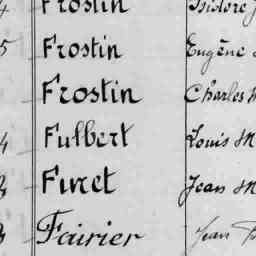 4 Frostin Isidore
5 Frostin Eugène
Frostin Charles
4 Fulbert Louis M
Furet Jean M
Fairier Jean